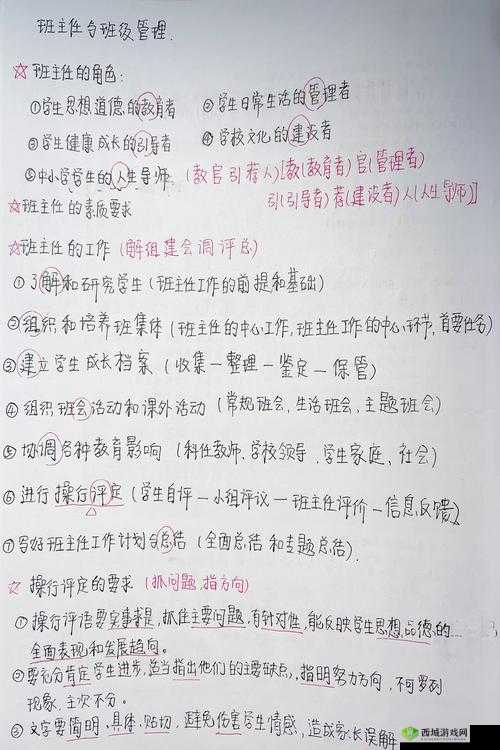 班主任与班级管理.
☆班主任的角色:
①学生思想道德的教育者 ②学生日常生活的管理者
③学生健康成长的引导者 ④学校文化的建设者
⑤中小学学生的人生导师 (教官引荐人)[教(教育者)官(管理者)
引(引导者)荐(建设者)人(人生导师)]
☆班主任的素质要求
☆班主任的工作(解组建会调评总)
①了解和研究学生(班主任工作的前提和基础)
②组织和培养班集体(班主任的中心工作,班主任工作的中心环节,首要任务)
③建立学生成长档案(收集—整理—鉴定—保管)
④组织班会活动和课外活动(常规班会,生活班会,主题班会)
⑤协调各种教育影响(科任教师、学校领导、学生家庭、社会)
⑥进行操行评定(学生自评—小组评议—班主任评价—信息反馈)
⑦写好班主任工作计划与总结(全面总结和专题总结).
☆操行评定的要求(抓问题,指方向)
①操行评语要实事求是,抓住主要问题,有针对性,能反映学生思想品德的
全面表现和发展趋向。
②要充分肯定学生进步,适当指出他们的主要缺点,指明努力方向,不可罗列
现象、主次不分。
③文字要简明、具体、贴切,避免伤害学生情感,造成家长误解
西城游戏网